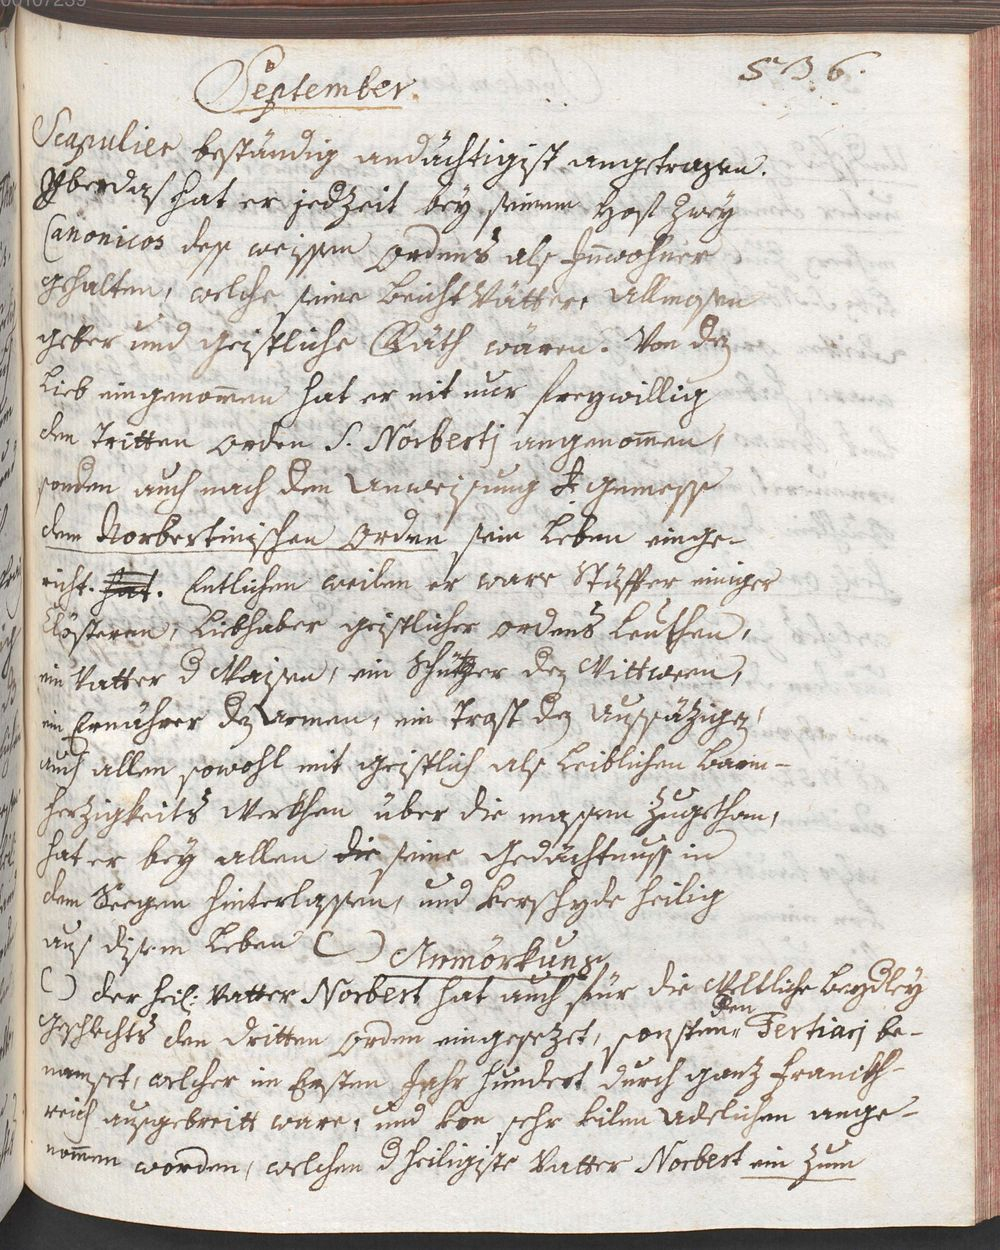 00107239
September. 536.
Scapulier beständig andächtigist angetragen.
Yberdas hat er jedzeit bey seinem Hoff zwey
Canonicos dess weissen Ordens als Innwohner
gehalten, welche seine Beicht Vätter, Allmosen
geber und geistliche Räth wären. Von der
Lieb eingenom̄en hat er nit nur freywillig
den Tritten Orden S. Norbertj angenom̄en,
sonden auch nach den Anweisung gemess
dem Norbertinischen Orden sein Leben einge-
richt. hat. Entlichen weilen er ware Stüffter einiger
Clösteren, Liebhaber geistlicher Ordens Leuthen,
ein Vatter d Waisen, ein Schützer der Wittwen,
ein Ernährer der Armen, ein Trost der Aussäzigen,
auch allen sowohl mit geistlich als Leiblichen Barm-
herzigkeits Werkhen über die massen zugethan,
hat er bey allen die seine Gedächtnuss in
dem Seegen hinterlassen, und verschyde heilig
aus disem Leben ( ) Anmörkung
( ) der heil: Vatter Norbert hat auch für die Weltliche Beydley
Geschlechts den dritten Orden eingesezet, sonsten den Tertiarj be-
namset, welcher im Ersten Jahr hundert durch ganz Franckh-
reich ausgebreitt ware, und von sehr vilen Adelichen ange-
nom̄en worden, welchen d heiligiste Vatter Norbert ein zum